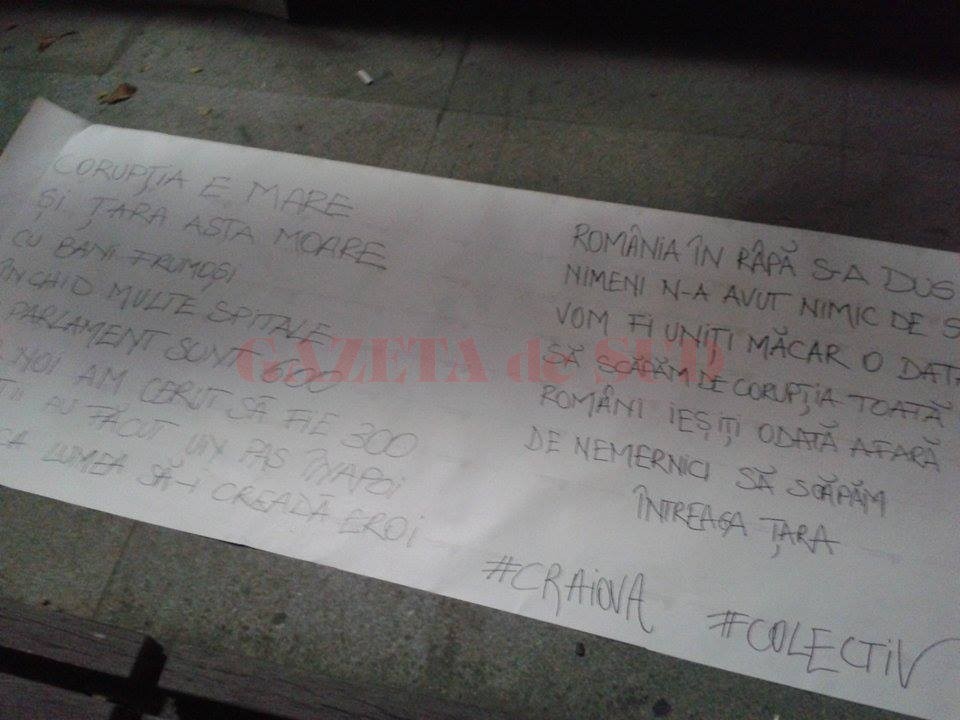 CORUPȚIA E MARE
ȘI ȚARA ASTA MOARE
CU BANI FRUMOȘI
ÎNCHID MULTE SPITALE
PARLAMENT SUNT 600
NOI AM CERUT SĂ FIE 300
AU FĂCUT UN PAS ÎNAPOI
CA LUMEA SĂ-I CREADĂ EROI
ROMÂNIA ÎN RÂPĂ S-A DUS
NIMENI N-A AVUT NIMIC DE S
VOM FI UNIȚI MĂCAR O DATĂ
SĂ SCĂPĂM DE CORUPȚIA TOATĂ
ROMÂNI IEȘIȚI ODATĂ AFARĂ
DE NEMERNICI SĂ SCĂPĂM
ÎNTREAGA ȚARA
#CRAIOVA #COLECTIV
GAZETA de SUD